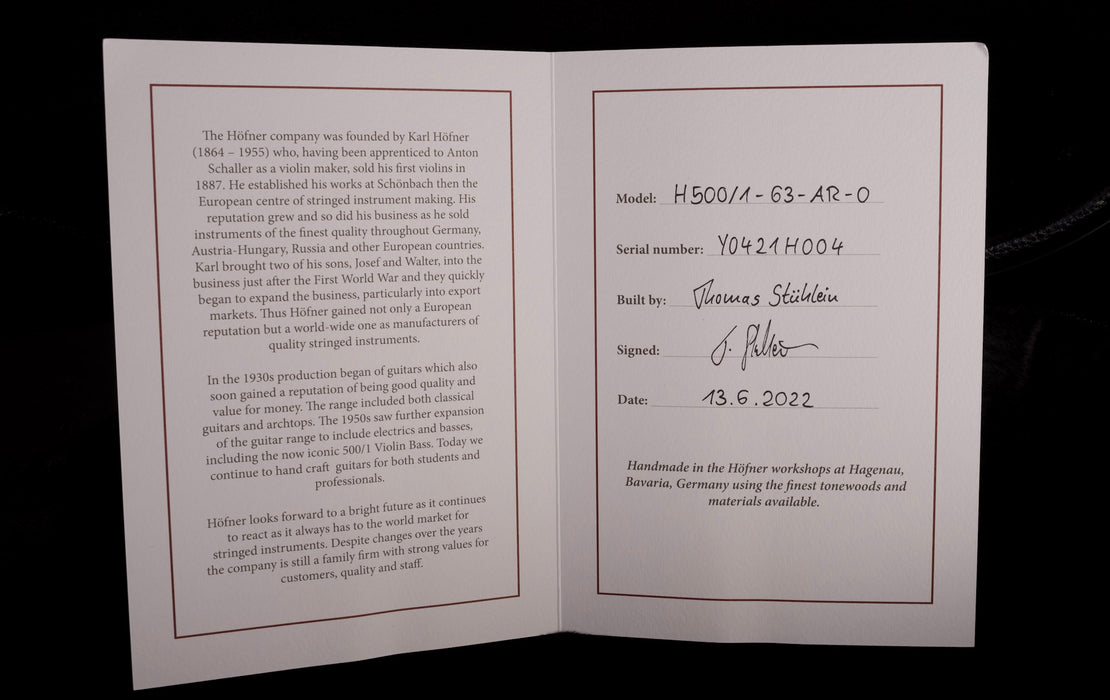 The Höfner company was founded by Karl Höfner
(1864 – 1955) who, having been apprenticed to Anton
Schaller as a violin maker, sold his first violins in
1887. He established his works at Schönbach then the
European centre of stringed instrument making. His
reputation grew and so did his business as he sold
instruments of the finest quality throughout Germany,
Austria-Hungary, Russia and other European countries.
Karl brought two of his sons, Josef and Walter, into the
business just after the First World War and they quickly
began to expand the business, particularly into export
markets. Thus Höfner gained not only a European
reputation but a world-wide one as manufacturers of
quality stringed instruments.
In the 1930s production began of guitars which also
soon gained a reputation of being good quality and
value for money. The range included both classical
guitars and archtops. The 1950s saw further expansion
of the guitar range to include electrics and basses,
including the now iconic 500/1 Violin Bass. Today we
continue to hand craft guitars for both students and
professionals.
Höfner looks forward to a bright future as it continues
to react as it always has to the world market for
stringed instruments. Despite changes over the years
the company is still a family firm with strong values for
customers, quality and staff.
Model: H500/1-63-AR-0
Serial number: Y0421H004
Built by: Thomas Stühlein
Signed:
Date: 13.6.2022
Handmade in the Höfner workshops at Hagenau,
Bavaria, Germany using the finest tonewoods and
materials available.